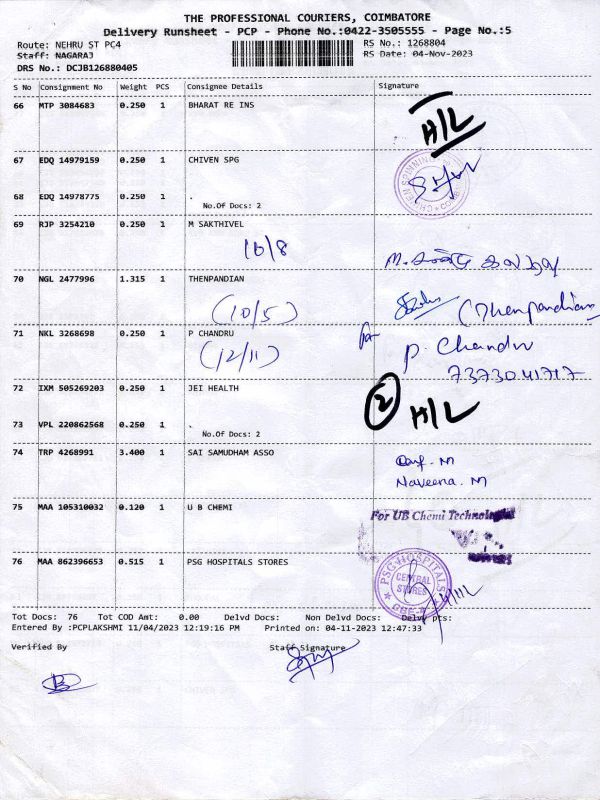 THE PROFESSIONAL COURIERS, COIMBATORE
Delivery Runsheet - PCP - Phone No.:0422-3505555 - Page No.:5
Route: NEHRU ST PC4 RS No.: 1268804
Staff: NAGARAJ RS Date: 04-Nov-2023
DRS No.: DCJB126880405
S No Consignment No Weight PCS Consignee Details Signature
66 MTP 3084683 0.250 1 BHARAT RE INS
H/L
67 EDQ 14979159 0.250 1 CHIVEN SPG
68 EDQ 14978775 0.250 1 .
No.Of Docs: 2
69 RJP 3254210 0.250 1 M SAKTHIVEL
10/8
70 NGL 2477996 1.315 1 THENPANDIAN
(10/5) (Thenpandian)
71 NKL 3268698 0.250 1 P CHANDRU
(12/11) P. Chandru
7373041717
72 IXM 505269203 0.250 1 JEI HEALTH
2 H/L
73 VPL 220862568 0.250 1 .
No.Of Docs: 2
74 TRP 4268991 3.400 1 SAI SAMUDHAM ASSO
Naveena. M
75 MAA 105310032 0.120 1 U B CHEMI
For UB Chemi Technologies
76 MAA 862396653 0.515 1 PSG HOSPITALS STORES
PSG HOSPITALS
CENTRAL
STORES
Tot Docs: 76 Tot COD Amt: 0.00 Delvd Docs: Non Delvd Docs: Delvy pts:
Entered By :PCPLAKSHMI 11/04/2023 12:19:16 PM Printed on: 04-11-2023 12:47:33
Verified By Staff Signature